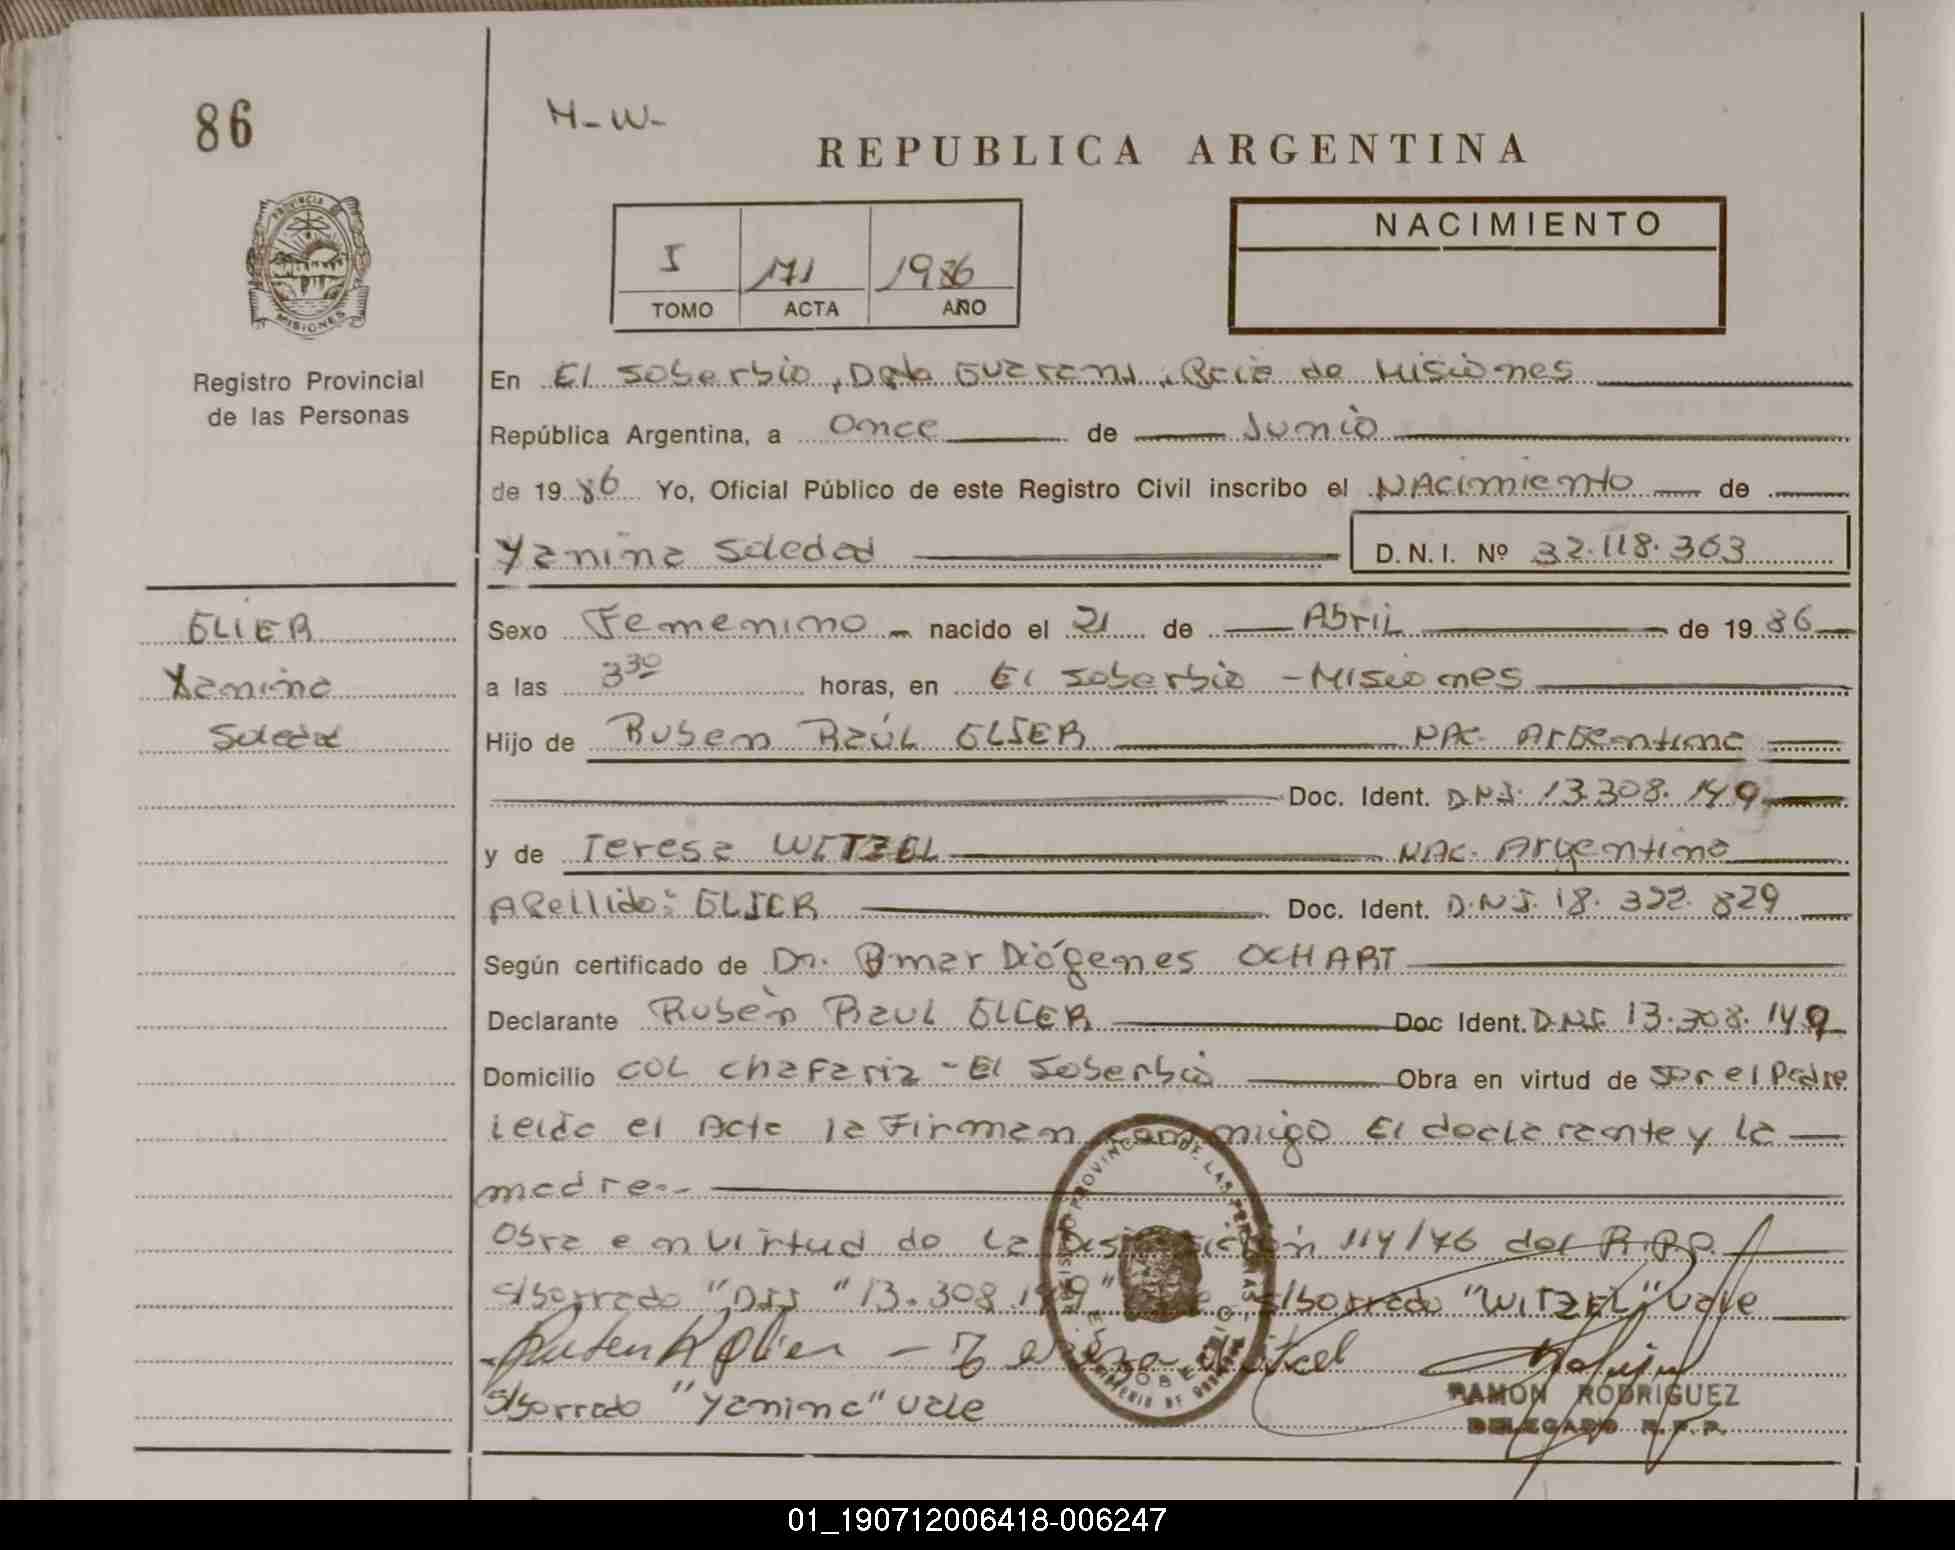 86
H-W-
REPUBLICA ARGENTINA
NACIMIENTO
I 171 1986
TOMO ACTA AÑO
PROVINCIA DE
MISIONES
Registro Provincial
de las Personas
En El Soberbio, Dpto Guarani, Pcia de Misiones
República Argentina, a Once de Junio
de 1986 Yo, Oficial Público de este Registro Civil inscribo el NAcimiento de
Yanina Soledad D.N.I. Nº 32.118.363
ELIER
Yanina
Soledad
Sexo Femenino nacido el 21 de Abril de 1986
a las 3 30 horas, en El Soberbio - Misiones
Hijo de Ruben Raúl ELIER NAC. Argentina
Doc. Ident. D.N.I. 13.308.149
y de Teresa WITZEL NAC. Argentina
Apellido: ELIER Doc. Ident. D.N.I. 18.322.829
Según certificado de Dr. Omar Diógenes OCHART
Declarante Rubén Raul ELIER Doc Ident. D.N.I. 13.308.149
Domicilio COL chafariz - El Soberbio Obra en virtud de ser el Padre
Leída el Acta la Firman conmigo El declarante y la
madre.--
Obra en virtud de La Disposición 114/76 del R.P.P.
s/borrado "DNI "13.308.149" s/borrado "WITZEL" Vale
Ruben R Elier - Teresa Witzel
s/borrado "Yanina" Vale
RAMON RODRIGUEZ
DELEGADO R.P.P.
01_190712006418-006247